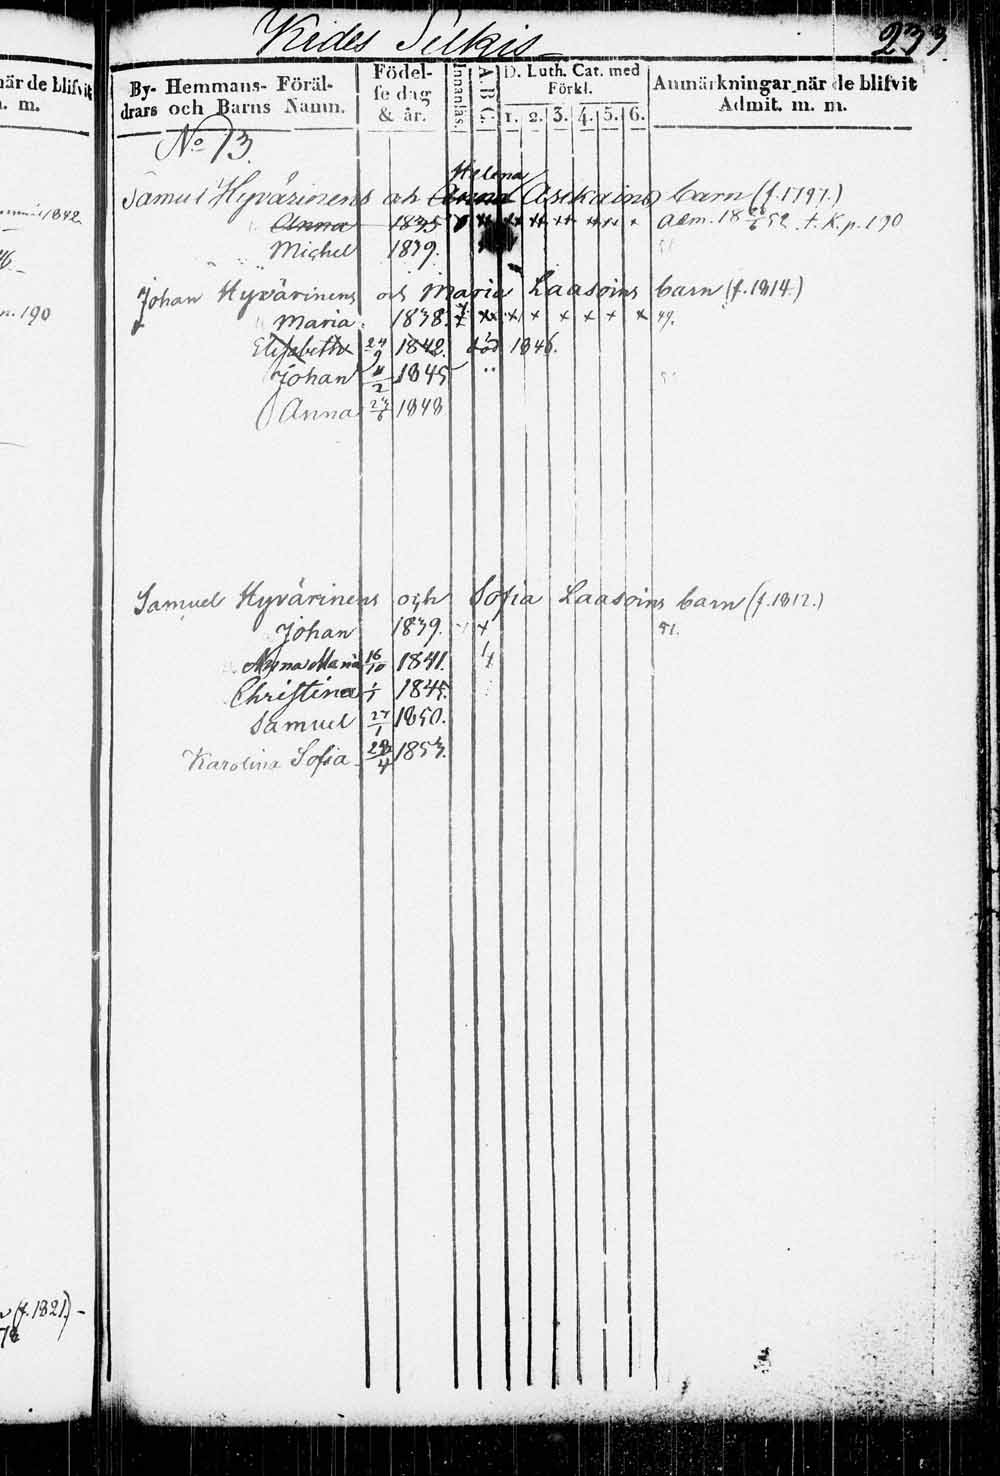 Kides Selkis
233.
när de blifvit
. m.
By- Hemmans- Föräl-
drars och Barns Namn.
Födel-
se dag
& år.
Innanläs.
A. B. C.
D. Luth. Cat. med
Förkl.
1. 2. 3. 4. 5. 6.
Anmärkningar när de blifvit
Admit. m. m.
No 13.
Helena
Samuel Hyvärinens och Anna Asikains barn (f. 1797.)
Anna 1835 x x x x x x x adm. 18 52. t. K. p. 190
Michel 1839.
1842
p. 190
Johan Hyvärinens och Maria Laasoins barn (f. 1814.)
Maria 1838. x x x x x x x x 49.
Elisabeth 24/9 1842. död 1846.
Johan 11/2 1845
Anna 23/6 1848
Samuel Hyvärinens och Sofia Laasoins barn (f. 1812.)
Johan 1839. x 51.
Anna Maria 16/10 1841.
Christina 1/5 1845.
Samuel 27/1 1850.
Karolina Sofia 28/4 1853.
(f. 1821.) -